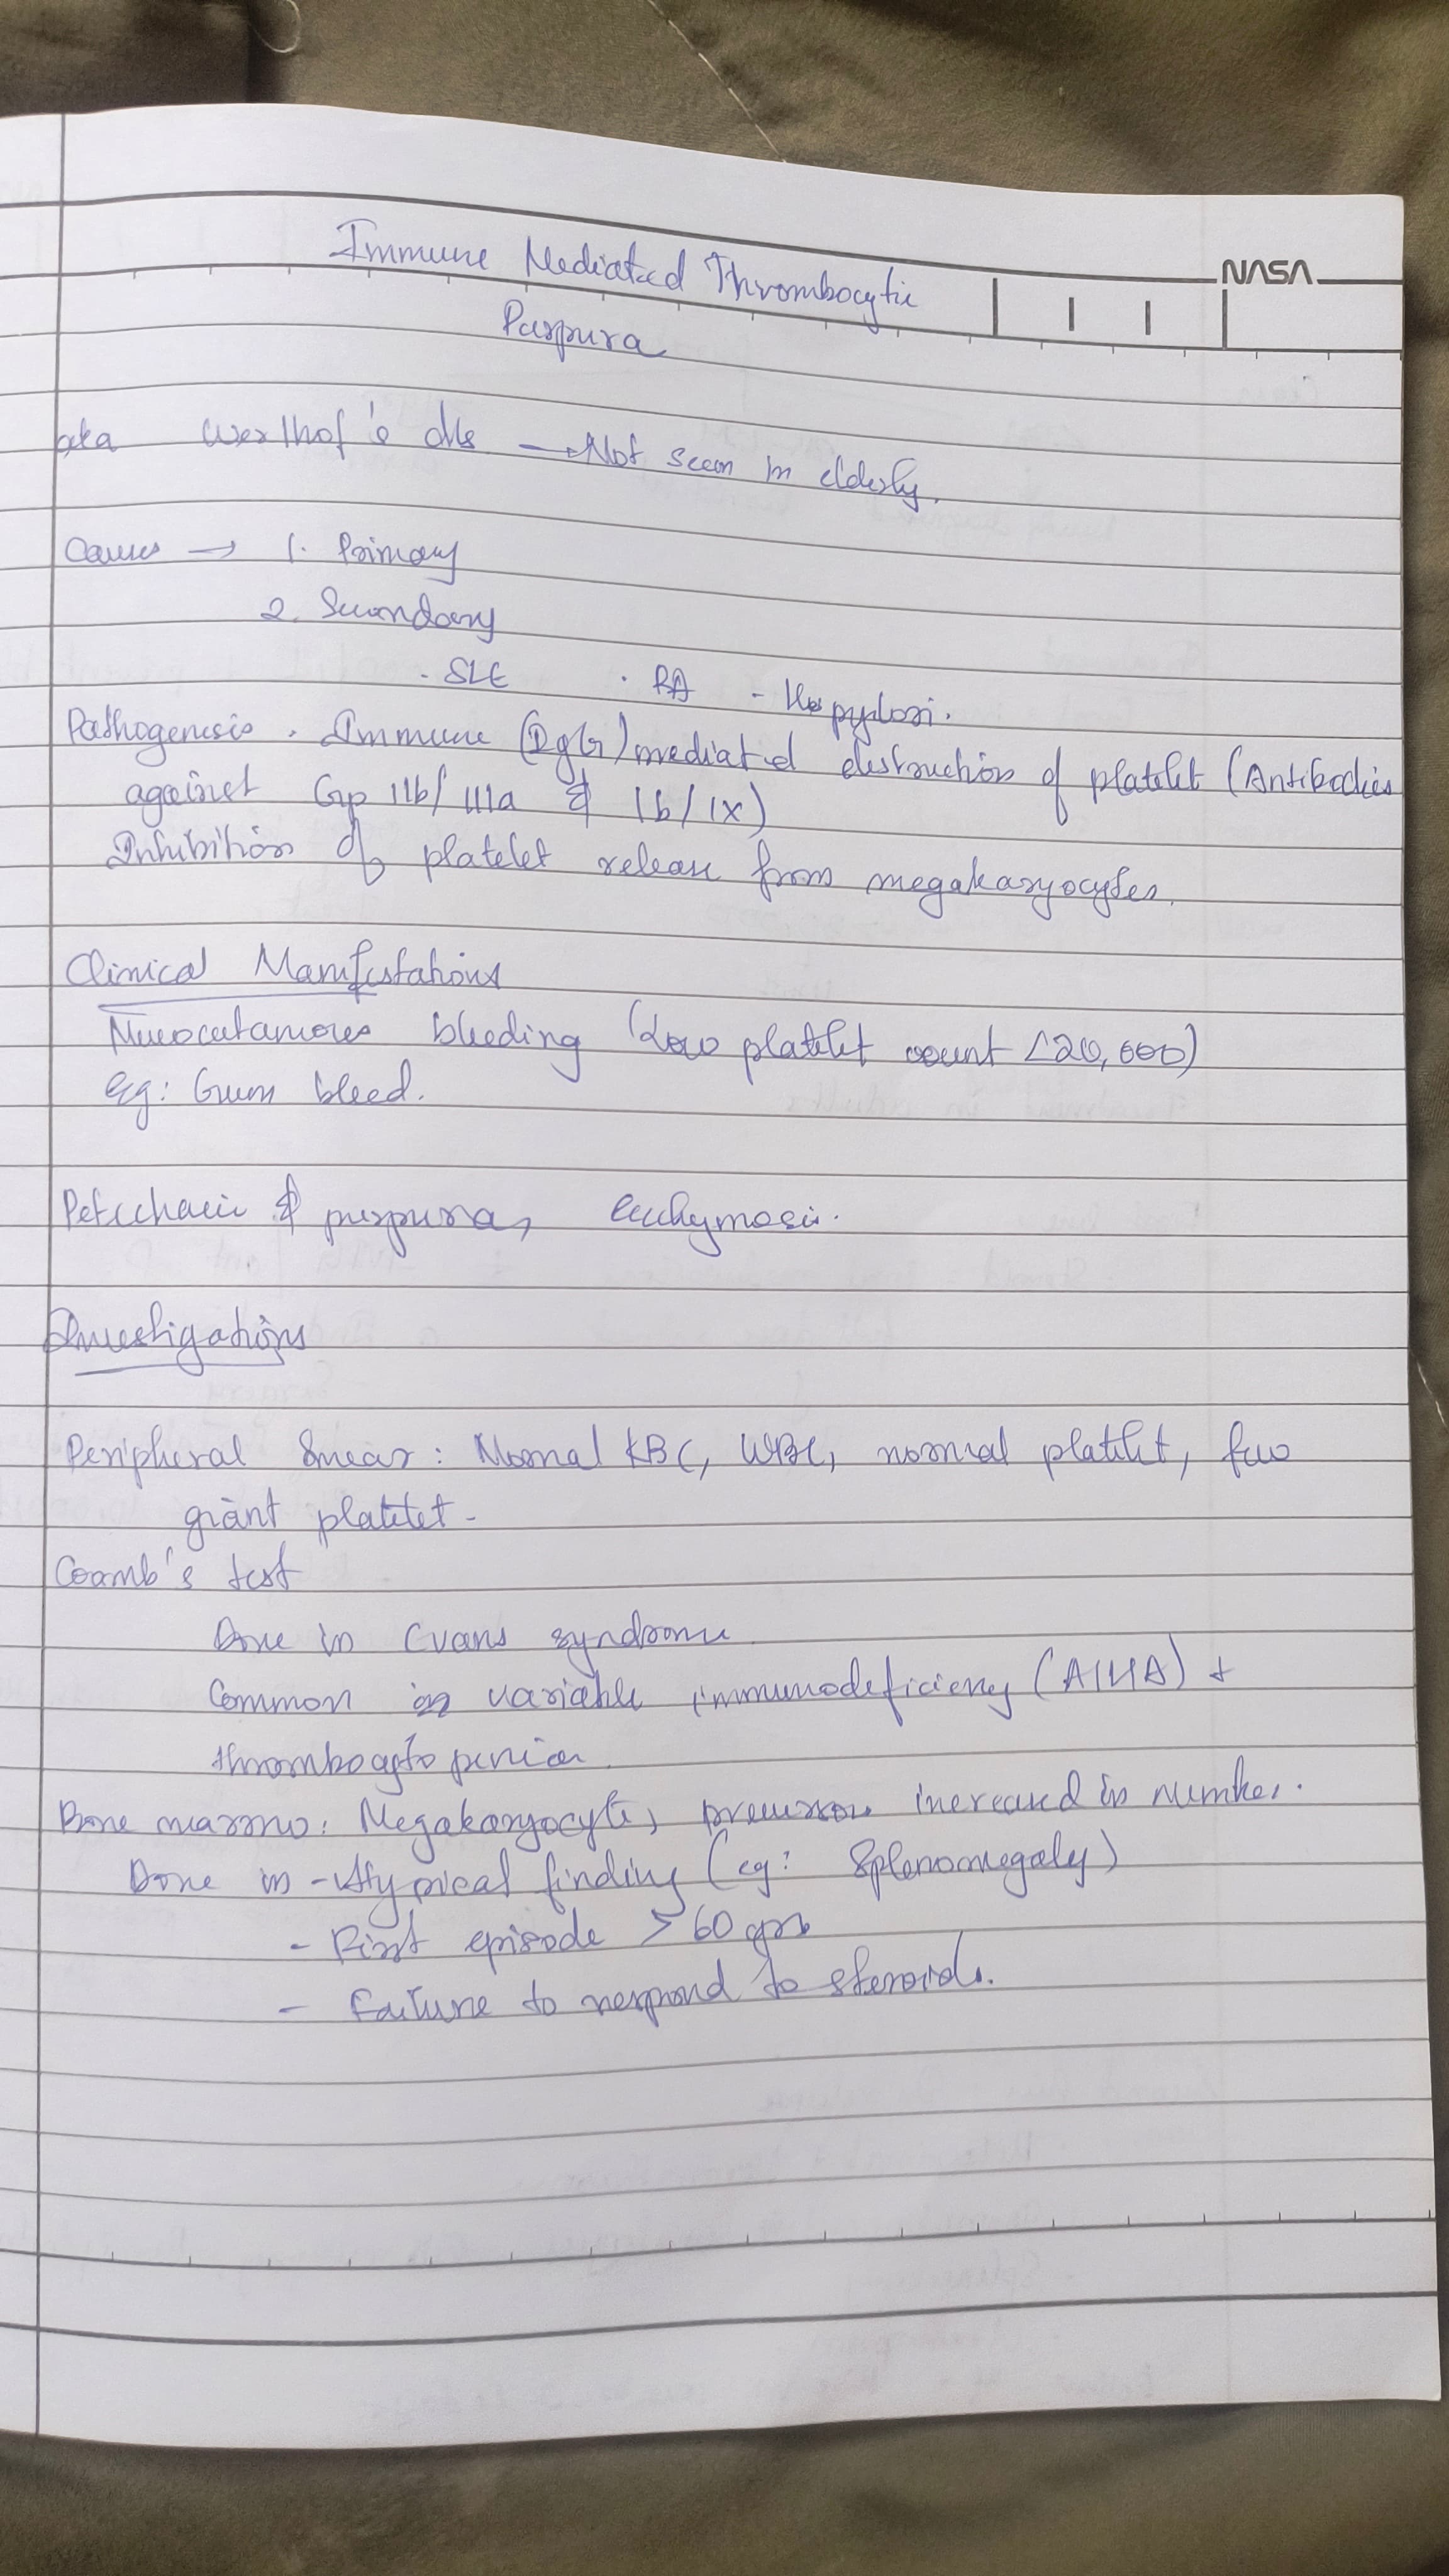 NASA
Immune Mediated Thrombocytic
Purpura
aka Werlhof's d/s → Not seen in elderly.
Causes → 1. Primary
2. Secondary
- SLE · RA - H. pylori.
Pathogenesis. Immune (IgG) mediated destruction of platelet (Antibodies
against Gp IIb/IIIa & Ib/IX)
Inhibition of platelet release from megakaryocytes.
Clinical Manifestations
Mucocutaneous bleeding (Low platelet count <20,000)
eg: Gum bleed.
Petechaeie & purpura, ecchymosis.
Investigations
Peripheral Smear: Normal RBC, WBC, normal platelet, few
giant platelet-
Coamb's test
Done in Evans syndrome
Common in variable immunodeficiency (AIHA) +
thrombocytopenia
Bone marrow: Megakaryocyte, precursors increased in number.
Done in - Atypical finding (eg: Splenomegaly)
- First episode > 60 yrs
- Failure to respond to steroids.